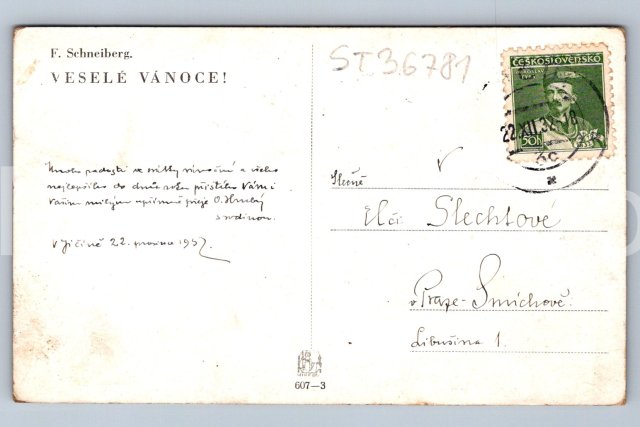 F. Schneiberg.
VESELÉ VÁNOCE!
ST36781
ČESKOSLOVENSKO
50h
22.XII.32
Mnoho radosti ve svátky vánoční a všeho
nejlepšího do dnů roku příštího Vám i
Vašim milým upřímně přeje O. Hrubý
s rodinou.
V Jičíně 22. prosince 1932.
Slečně
Elči Šlechtové
v Praze-Smíchově.
Libušina 1.
607—3